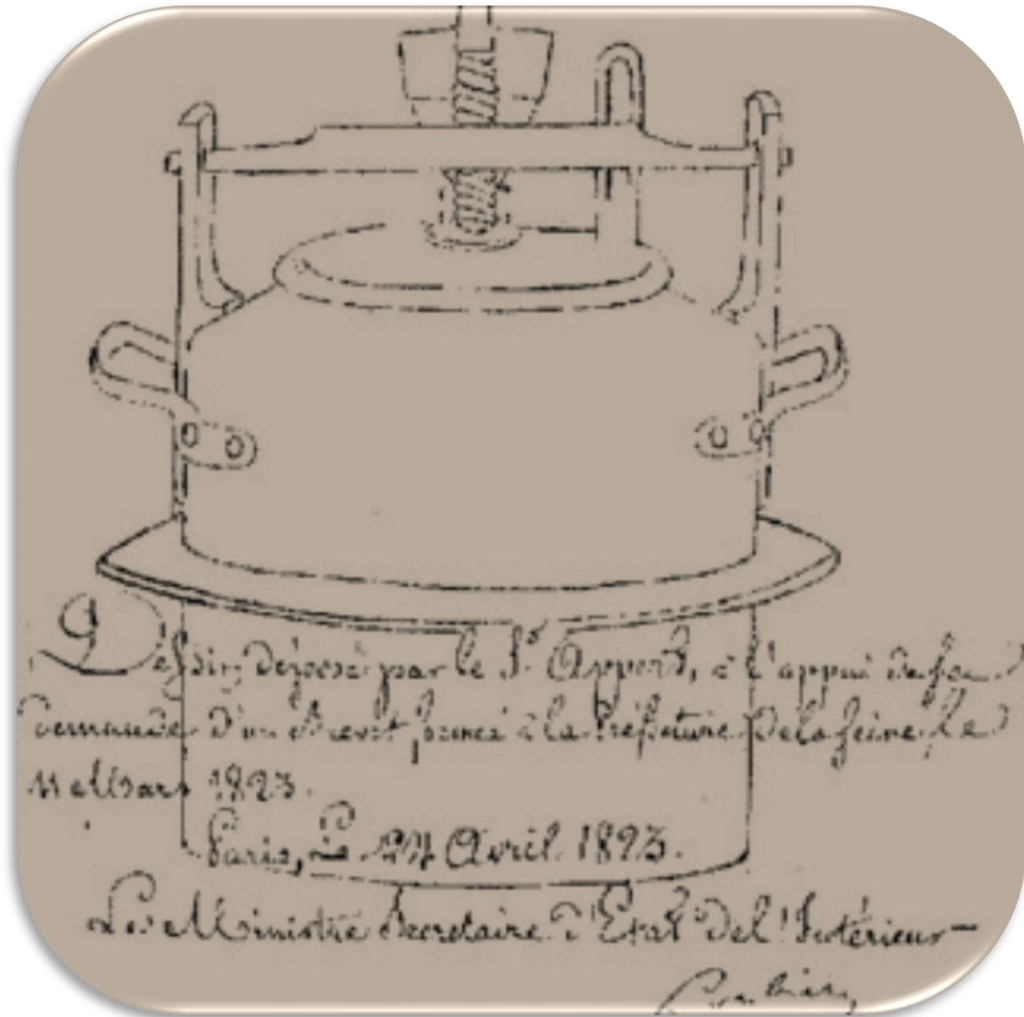 Dessin déposé par le Sr. Appert, à l'appui de sa
demande d'un Brevet, formée à la Préfecture de la Seine, le
11 Mars 1823.
Paris, Le 24 Avril 1823.
Le Ministre Secretaire d'Etat de l'Intérieur